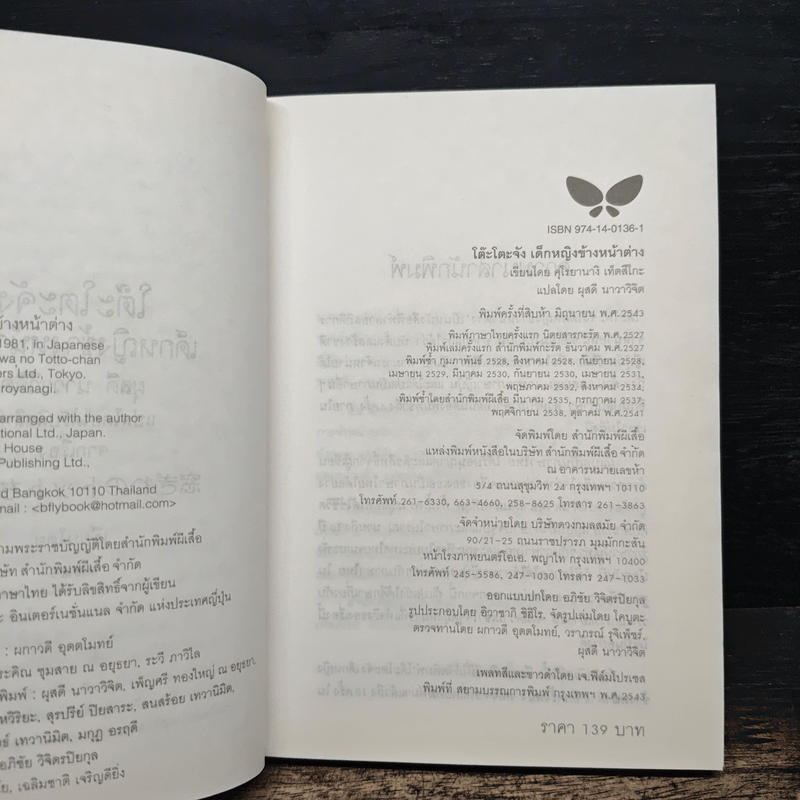 ข้างหน้าต่าง
1981, in Japanese
wa no Totto-chan
ers Ltd., Tokyo.
royanagi.
arranged with the author
tional Ltd., Japan.
House
Publishing Ltd.,
d Bangkok 10110 Thailand
mail : <bflybook@hotmail.com>
ามพระราชบัญญัติโดยสำนักพิมพ์ผีเสื้อ
ษัท สำนักพิมพ์ผีเสื้อ จำกัด
ภาษาไทย ได้รับลิขสิทธิ์จากผู้เขียน
ะ อินเตอร์เนชั่นแนล จำกัด แห่งประเทศญี่ปุ่น
: ผกาวดี อุตตโมทย์
ระดิณ ชุมสาย ณ อยุธยา, ระวี ภาวิไล
พิมพ์ : ผุสดี นาวาวิจิต, เพ็ญศรี ทองใหญ่ ณ อยุธยา,
หวิริยะ, สุรปรีย์ ปิยสาระ, สนสร้อย เทวานิมิต,
ธ์ เทวานิมิต, มกุฏ อรฤดี
อภิชัย วิจิตรปิยกุล
ัย, เฉลิมชาติ เจริญดียิ่ง
ISBN 974-14-0136-1
โต๊ะโตะจัง เด็กหญิงข้างหน้าต่าง
เขียนโดย คุโรยานางิ เท็ตสึโกะ
แปลโดย ผุสดี นาวาวิจิต
พิมพ์ครั้งที่สิบห้า มิถุนายน พ.ศ.2543
พิมพ์ภาษาไทยครั้งแรก นิตยสารกะรัต พ.ศ.2527
พิมพ์เล่มครั้งแรก สำนักพิมพ์กะรัต ธันวาคม พ.ศ.2527
พิมพ์ซ้ำ กุมภาพันธ์ 2528, สิงหาคม 2528, กันยายน 2528,
เมษายน 2529, มีนาคม 2530, กันยายน 2530, เมษายน 2531,
พฤษภาคม 2532, สิงหาคม 2534,
พิมพ์ซ้ำโดยสำนักพิมพ์ผีเสื้อ มีนาคม 2535, กรกฎาคม 2537,
พฤศจิกายน 2538, ตุลาคม พ.ศ.2541
จัดพิมพ์โดย สำนักพิมพ์ผีเสื้อ
แหล่งพิมพ์หนังสือในบริษัท สำนักพิมพ์ผีเสื้อ จำกัด
ณ อาคารหมายเลขห้า
5/4 ถนนสุขุมวิท 24 กรุงเทพฯ 10110
โทรศัพท์ 261-6330, 663-4660, 258-8625 โทรสาร 261-3863
จัดจำหน่ายโดย บริษัทดวงกมลสมัย จำกัด
90/21-25 ถนนราชปรารภ มุมมักกะสัน
หน้าโรงภาพยนตร์โอเอ. พญาไท กรุงเทพฯ 10400
โทรศัพท์ 245-5586, 247-1030 โทรสาร 247-1033
ออกแบบปกโดย อภิชัย วิจิตรปิยกุล
รูปประกอบโดย อิวาซากิ ชิฮิโร, จัดรูปเล่มโดย ไดบูตะ
ตรวจทานโดย ผกาวดี อุตตโมทย์, วราภรณ์ รุจิเพ็ชร์,
ผุสดี นาวาวิจิต
เพลทสีและขาวดำโดย เจ.ฟิล์มโปรเซส
พิมพ์ที่ สยามบรรณการพิมพ์ กรุงเทพฯ พ.ศ.2543
ราคา 139 บาท